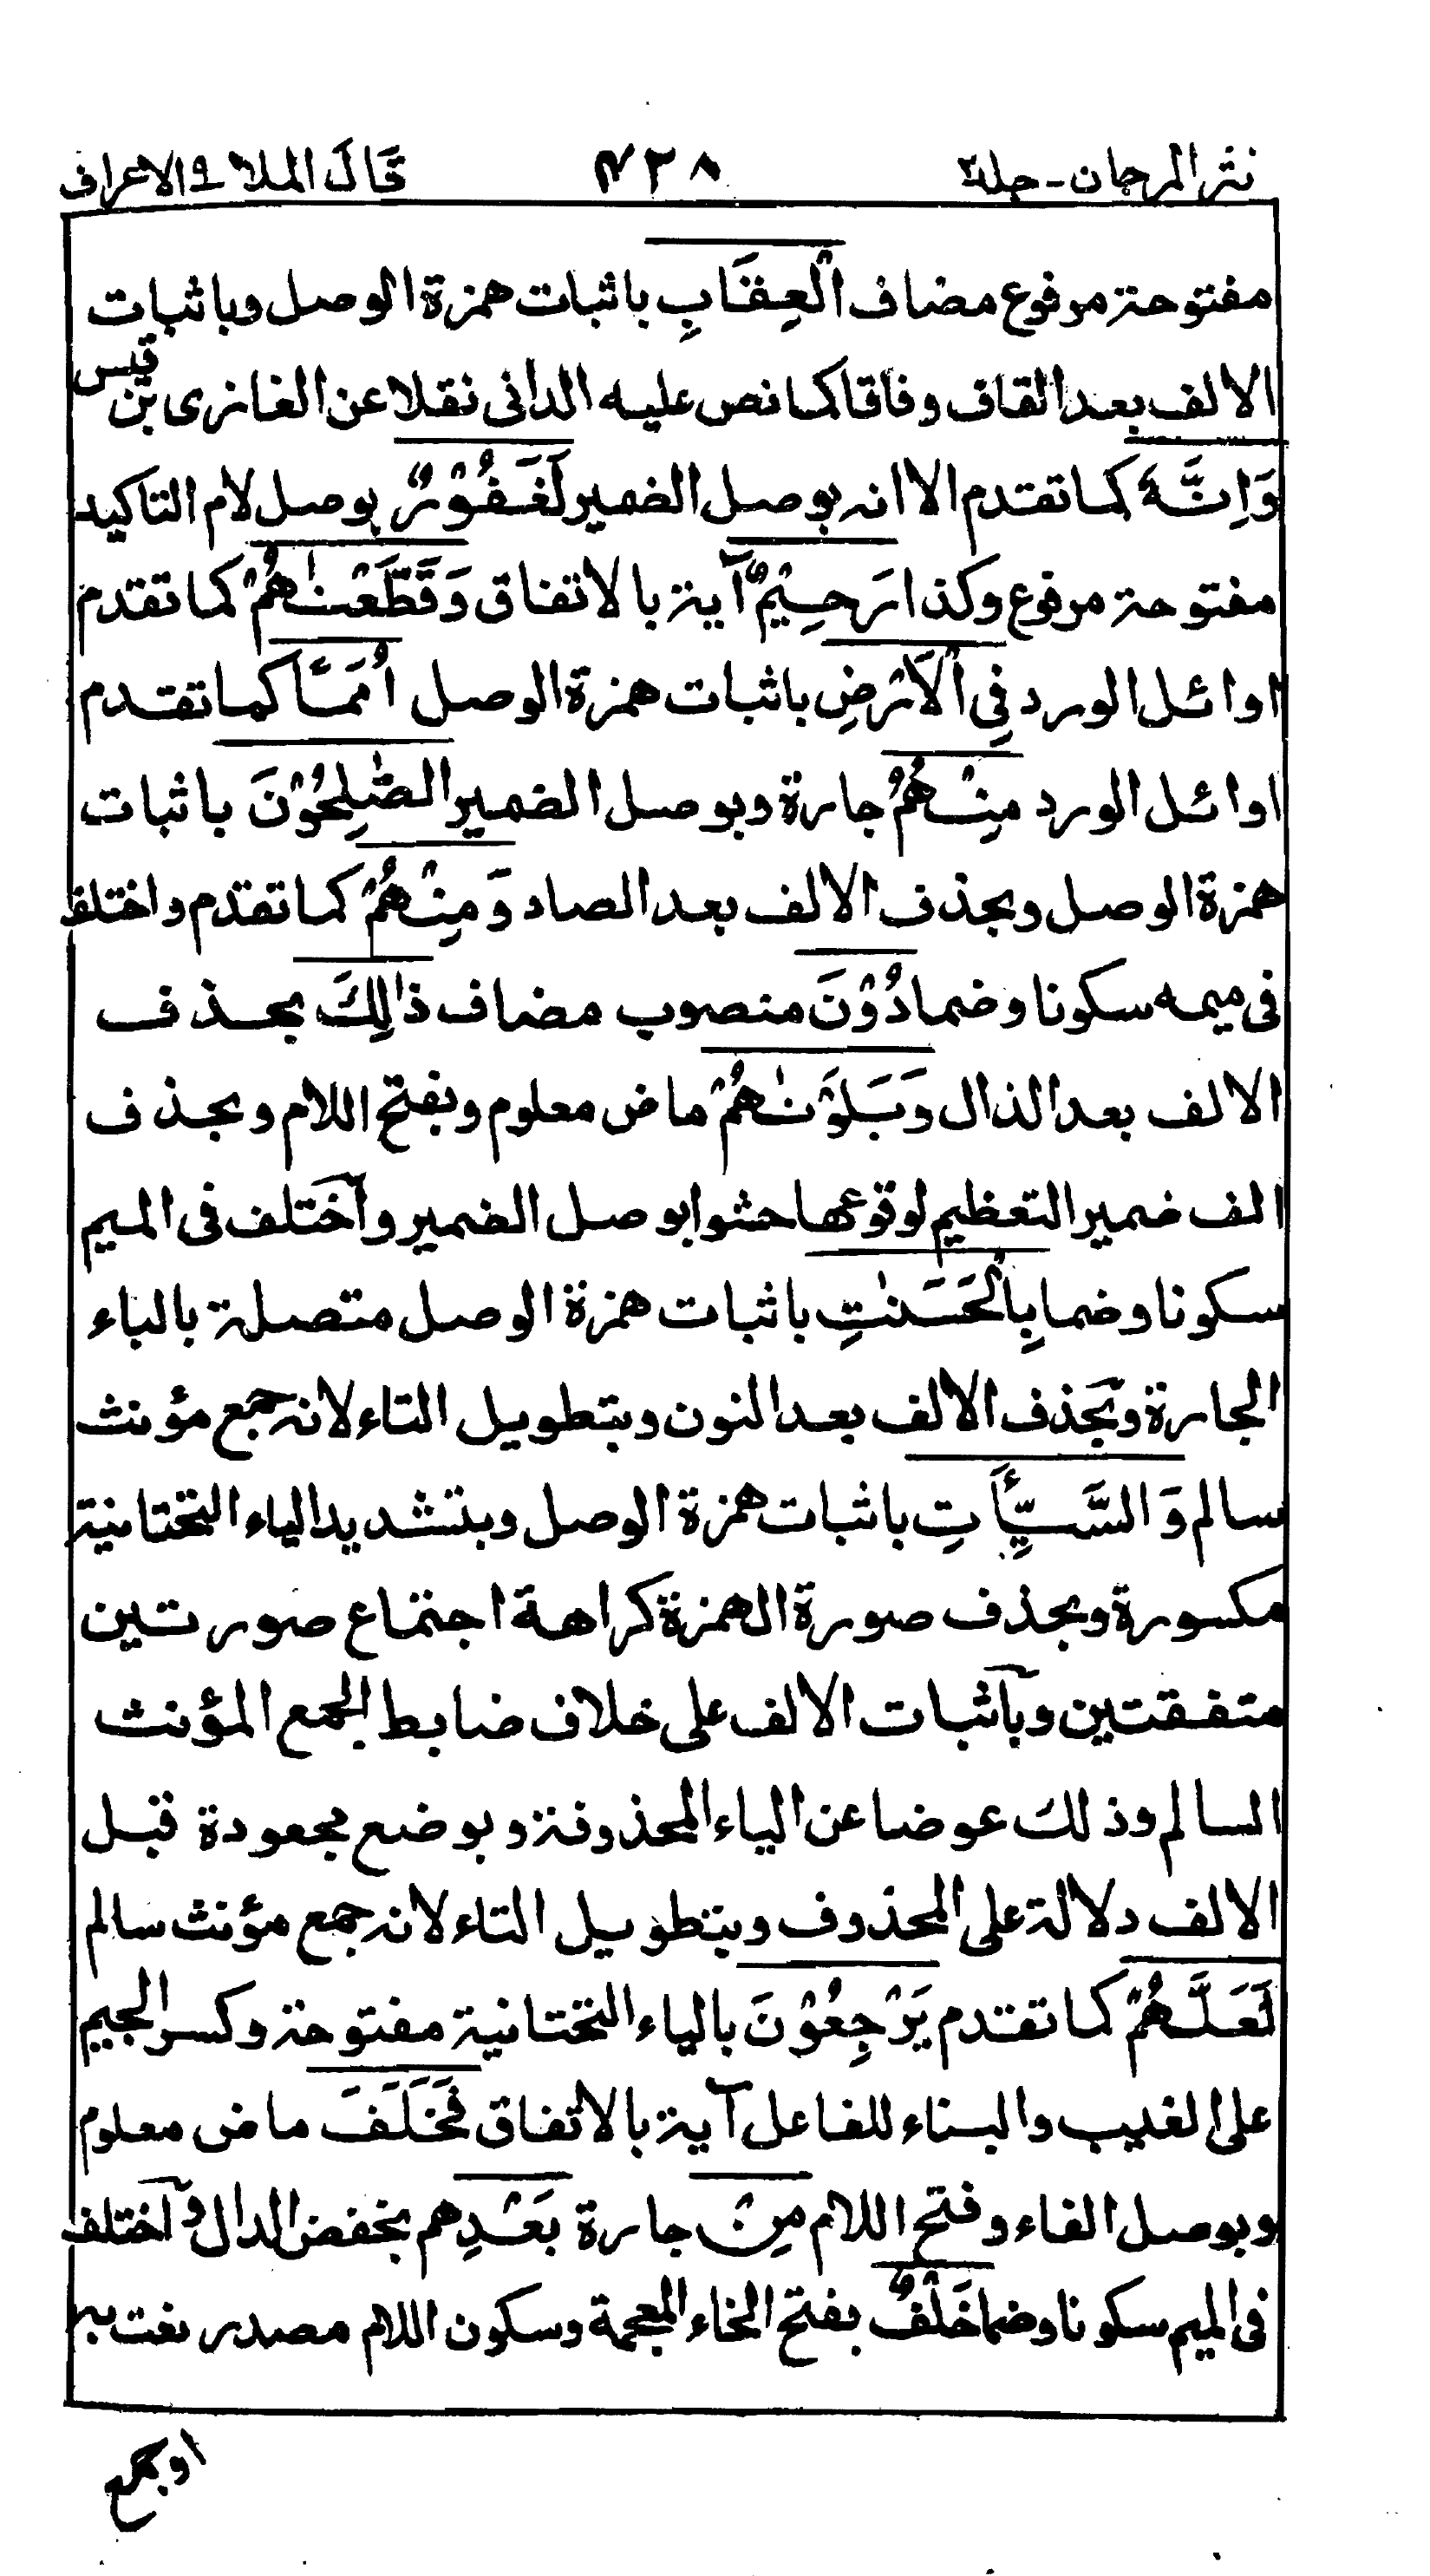 نثر المرجان - جلد٢ ٤٣٨ قَالَ الملا ٩ الاعراف
مفتوحة مرفوع مضاف الْعِقَابِ باثبات همزة الوصل وباثبات
الالف بعد القاف وفاقا كما نص عليه الدانى نقلا عن الغازى بن قيس
وَاِنَّهٗ كما تقدم الا انه بوصل الضمير لَغَفُوْرٌ بوصل لام التاكيد
مفتوحة مرفوع وكذا رَحِيْمٌ آية بالاتفاق وَقَطَّعْنٰهُمْ كما تقدم
اوائل الورد فِى الْاَرْضِ باثبات همزة الوصل اُمَمًا كما تقدم
اوائل الورد مِنْهُمُ جارة وبوصل الضمير الصّٰلِحُوْنَ باثبات
همزة الوصل وبحذف الالف بعد الصاد وَمِنْهُمْ كما تقدم واختلف
فى ميمه سكونا وضما دُوْنَ منصوب مضاف ذٰلِكَ بحذف
الالف بعد الذال وَبَلَوْنٰهُمْ ماض معلوم وبفتح اللام وبحذف
الف ضمير التعظيم لوقوعها حشوا بوصل الضمير واختلف فى الميم
سكونا وضما بِالْحَسَنٰتِ باثبات همزة الوصل متصلة بالباء
الجارة وبحذف الالف بعد النون وبتطويل التاء لانه جمع مؤنث
سالم وَالسَّيِّأٰتِ باثبات همزة الوصل وبتشديد الياء التحتانية
مكسورة وبحذف صورة الهمزة كراهة اجتماع صورتين
متفقتين وباثبات الالف على خلاف ضابط الجمع المؤنث
السالم وذلك عوضا عن الياء المحذوفة وبوضع مجعودة قبل
الالف دلالة على المحذوف وبتطويل التاء لانه جمع مؤنث سالم
لَعَلَّهُمْ كما تقدم يَرْجِعُوْنَ بالياء التحتانية مفتوحة وكسر الجيم
على الغيب والبناء للفاعل آية بالاتفاق فَخَلَفَ ماض معلوم
وبوصل الفاء وفتح اللام مِنْ جارة بَعْدِهم بخفض الدال واختلف
فى الميم سكونا وضما خَلْفٌ بفتح الخاء المعجمة وسكون اللام مصدر نعت به
اوجمع